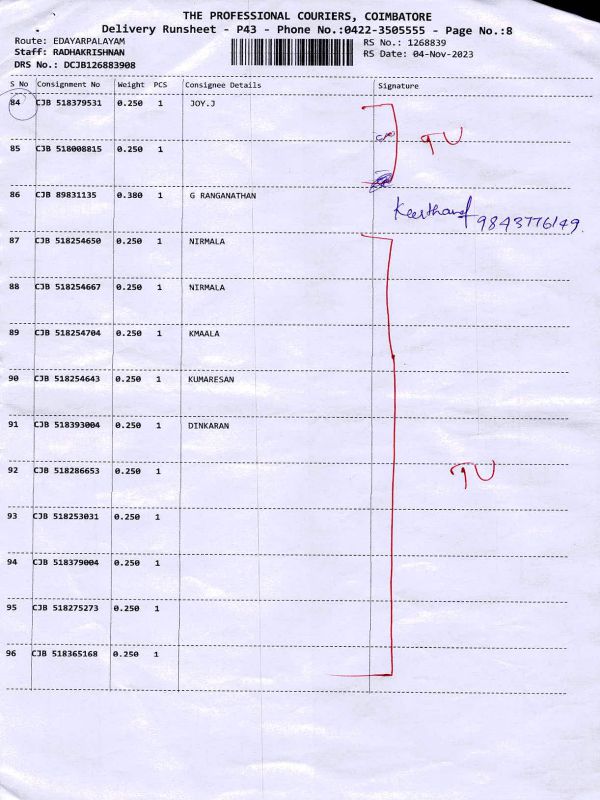 THE PROFESSIONAL COURIERS, COIMBATORE
Delivery Runsheet - P43 - Phone No.:0422-3505555 - Page No.:8
Route: EDAYARPALAYAM RS No.: 1268839
Staff: RADHAKRISHNAN RS Date: 04-Nov-2023
DRS No.: DCJB126883908
S No Consignment No Weight PCS Consignee Details Signature
84 CJB 518379531 0.250 1 JOY.J
TU
85 CJB 518008815 0.250 1
86 CJB 89831135 0.380 1 G RANGANATHAN
9843776149
87 CJB 518254650 0.250 1 NIRMALA
88 CJB 518254667 0.250 1 NIRMALA
89 CJB 518254704 0.250 1 KMAALA
90 CJB 518254643 0.250 1 KUMARESAN
91 CJB 518393004 0.250 1 DINKARAN
92 CJB 518286653 0.250 1 TU
93 CJB 518253031 0.250 1
94 CJB 518379004 0.250 1
95 CJB 518275273 0.250 1
96 CJB 518365168 0.250 1